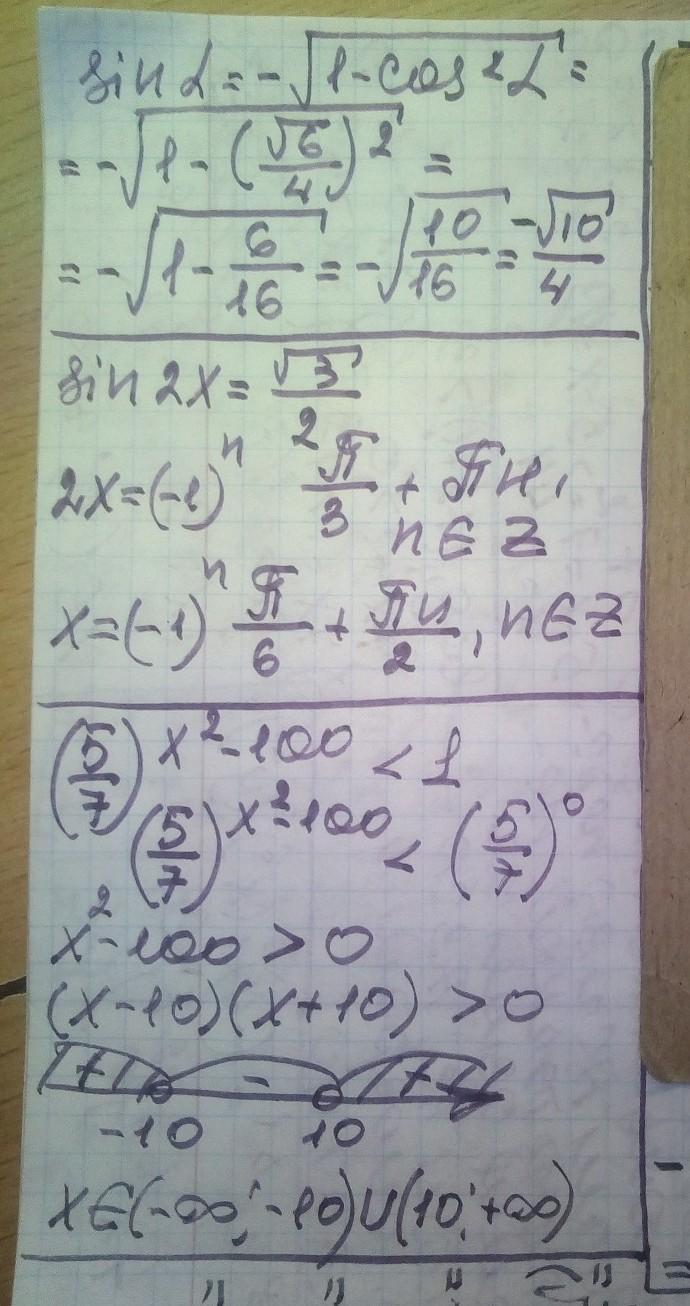 sin α = -√(1 - cos²α) =
= -√(1 - (√6/4)²) =
= -√(1 - 6/16) = -√(10/16) = -√10/4
sin 2x = √3/2
2x = (-1)ⁿ π/3 + πn,
n ∈ Z
x = (-1)ⁿ π/6 + πn/2, n ∈ Z
(5/7)^(x²-100) < 1
(5/7)^(x²-100) < (5/7)⁰
x² - 100 > 0
(x-10)(x+10) > 0
+ - +
-10 10
x ∈ (-∞; -10) ∪ (10; +∞)